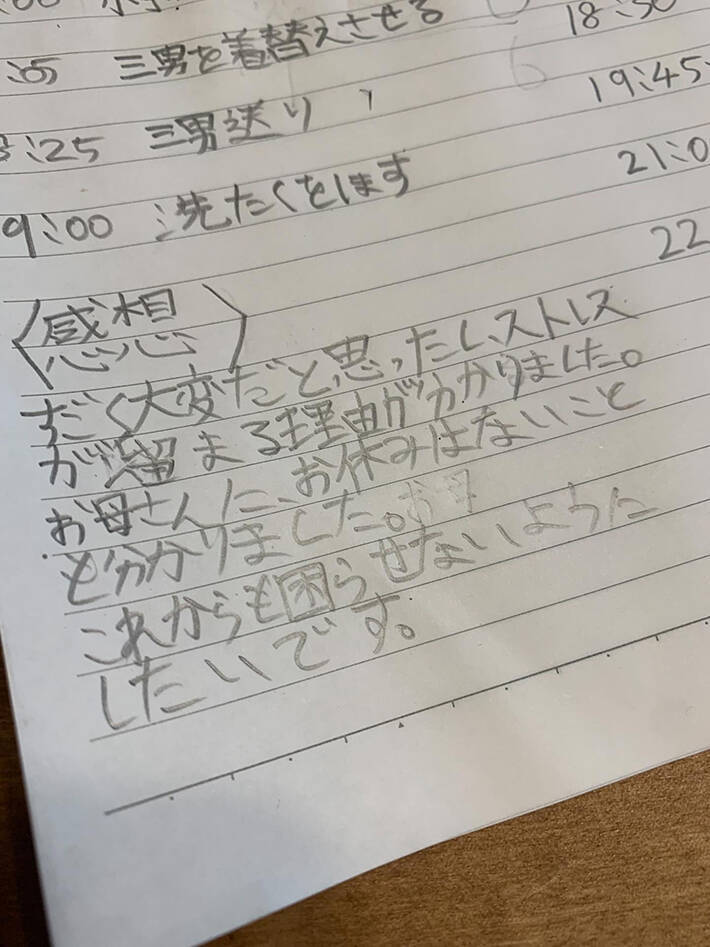 :05 三男を着替えさせる 18:30
8:25 三男送り 19:45
9:00 洗たくをします 21:0
22
〈感想〉
すごく大変だと思ったし、ストレス
が溜まる理由が分かりました。
お母さんに、お休みはないこと
も分かりました。お母
これからも困らせないように
したいです。